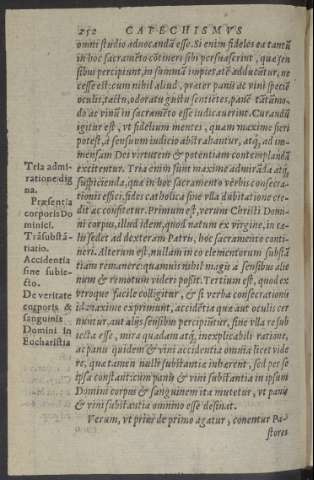 252 CATECHISMVS
omni studio aduocandũ esse. Si enim fideles ea tantũ
in hoc sacramẽto cõtineri sibi persuaserint, quæ sen
sibus percipiunt, in summã impietatẽ adducãtur, ne
cesse est: cum nihil aliud, præter panis ac vini speciẽ
oculis, tactu, odoratu, gustu sentiẽtes, panẽ tãtũmo,
do ac vinũ in sacramẽto esse iudicauerint. Curandũ
igitur est, vt fidelium mentes, quam maxime fieri
potest, à sensuum iudicio abstrahantur, atq; ad im-
mensam Dei virtutem & potentiam contemplandã
excitentur. Tria enim sunt maxime admirãda atq;
suspicienda, quæ in hoc sacramento verbis consecra-
tionis effici, fides catholica sine vlla dubitatione cre-
dit ac confitetur. Primum est, verum Christi Domi-
ni corpus, illud idem, quod natum ex virgine, in cæ-
lis sedet ad dexteram Patris, hoc sacramento conti-
neri. Alterum est, nullam in eo elementorum substã
tiam remanere: quamuis nihil magis à sensibus alie
num & remotum videri possit. Tertium est, quod ex
vtroque facile colligitur, & si verba consecrationis
id maxime exprimunt, accidẽtia quæ aut oculis cer
nuntur, aut alijs sensibus percipiũtur, sine vlla re sub
iecta esse, mira quadam atq; inexplicabili ratione,
ac panis quidem & vini accidentia omnia licet vide
re, quæ tamen nulli substantiæ inhærent, sed per se
ipsa constant: cum panis & vini substantia in ipsum
Domini corpus & sanguinem ita mutetur, vt panis
& vini substantia omnino esse desinat.
Verum, vt prius de primo agatur, conentur Pa-
stores
Tria admi-
ratione dig
na.
Præsentia
corporis Do
minici.
Trãsubstã-
tiatio.
Accidentia
sine subie-
cto.
De veritate
corporis &
sanguinis
Domini in
Eucharistia